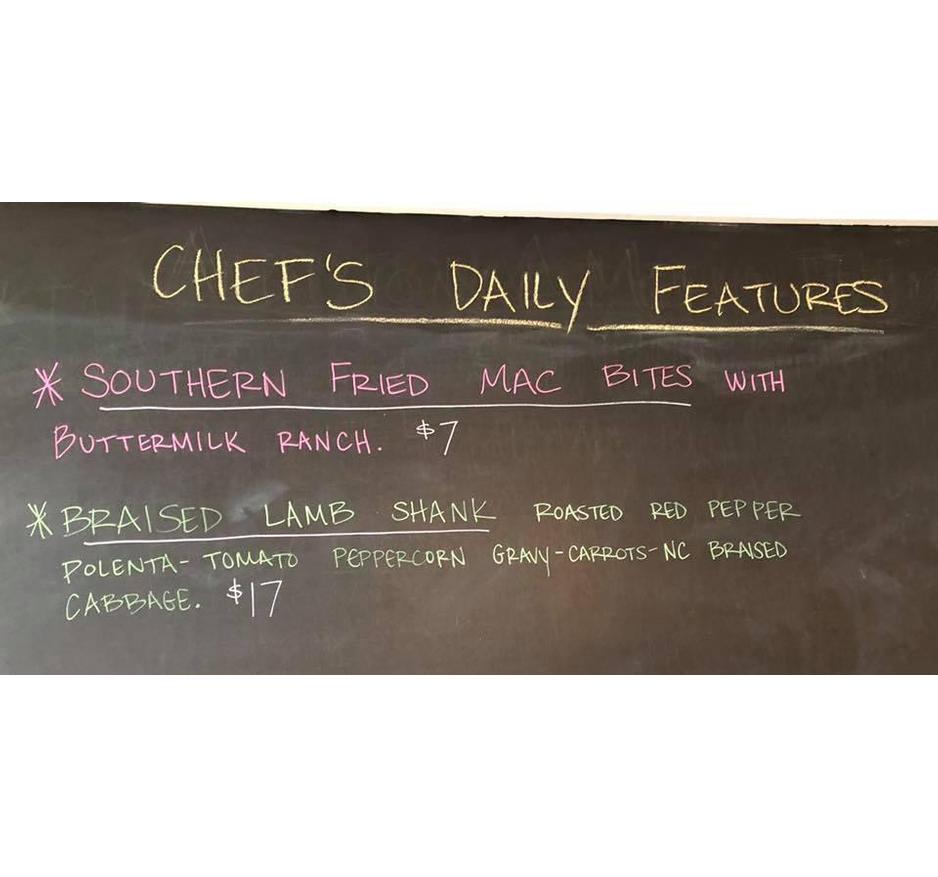 CHEF'S DAILY FEATURES
* SOUTHERN FRIED MAC BITES WITH
BUTTERMILK RANCH. $7
* BRAISED LAMB SHANK ROASTED RED PEPPER
POLENTA- TOMATO PEPPERCORN GRAVY-CARROTS-NC BRAISED
CABBAGE. $17